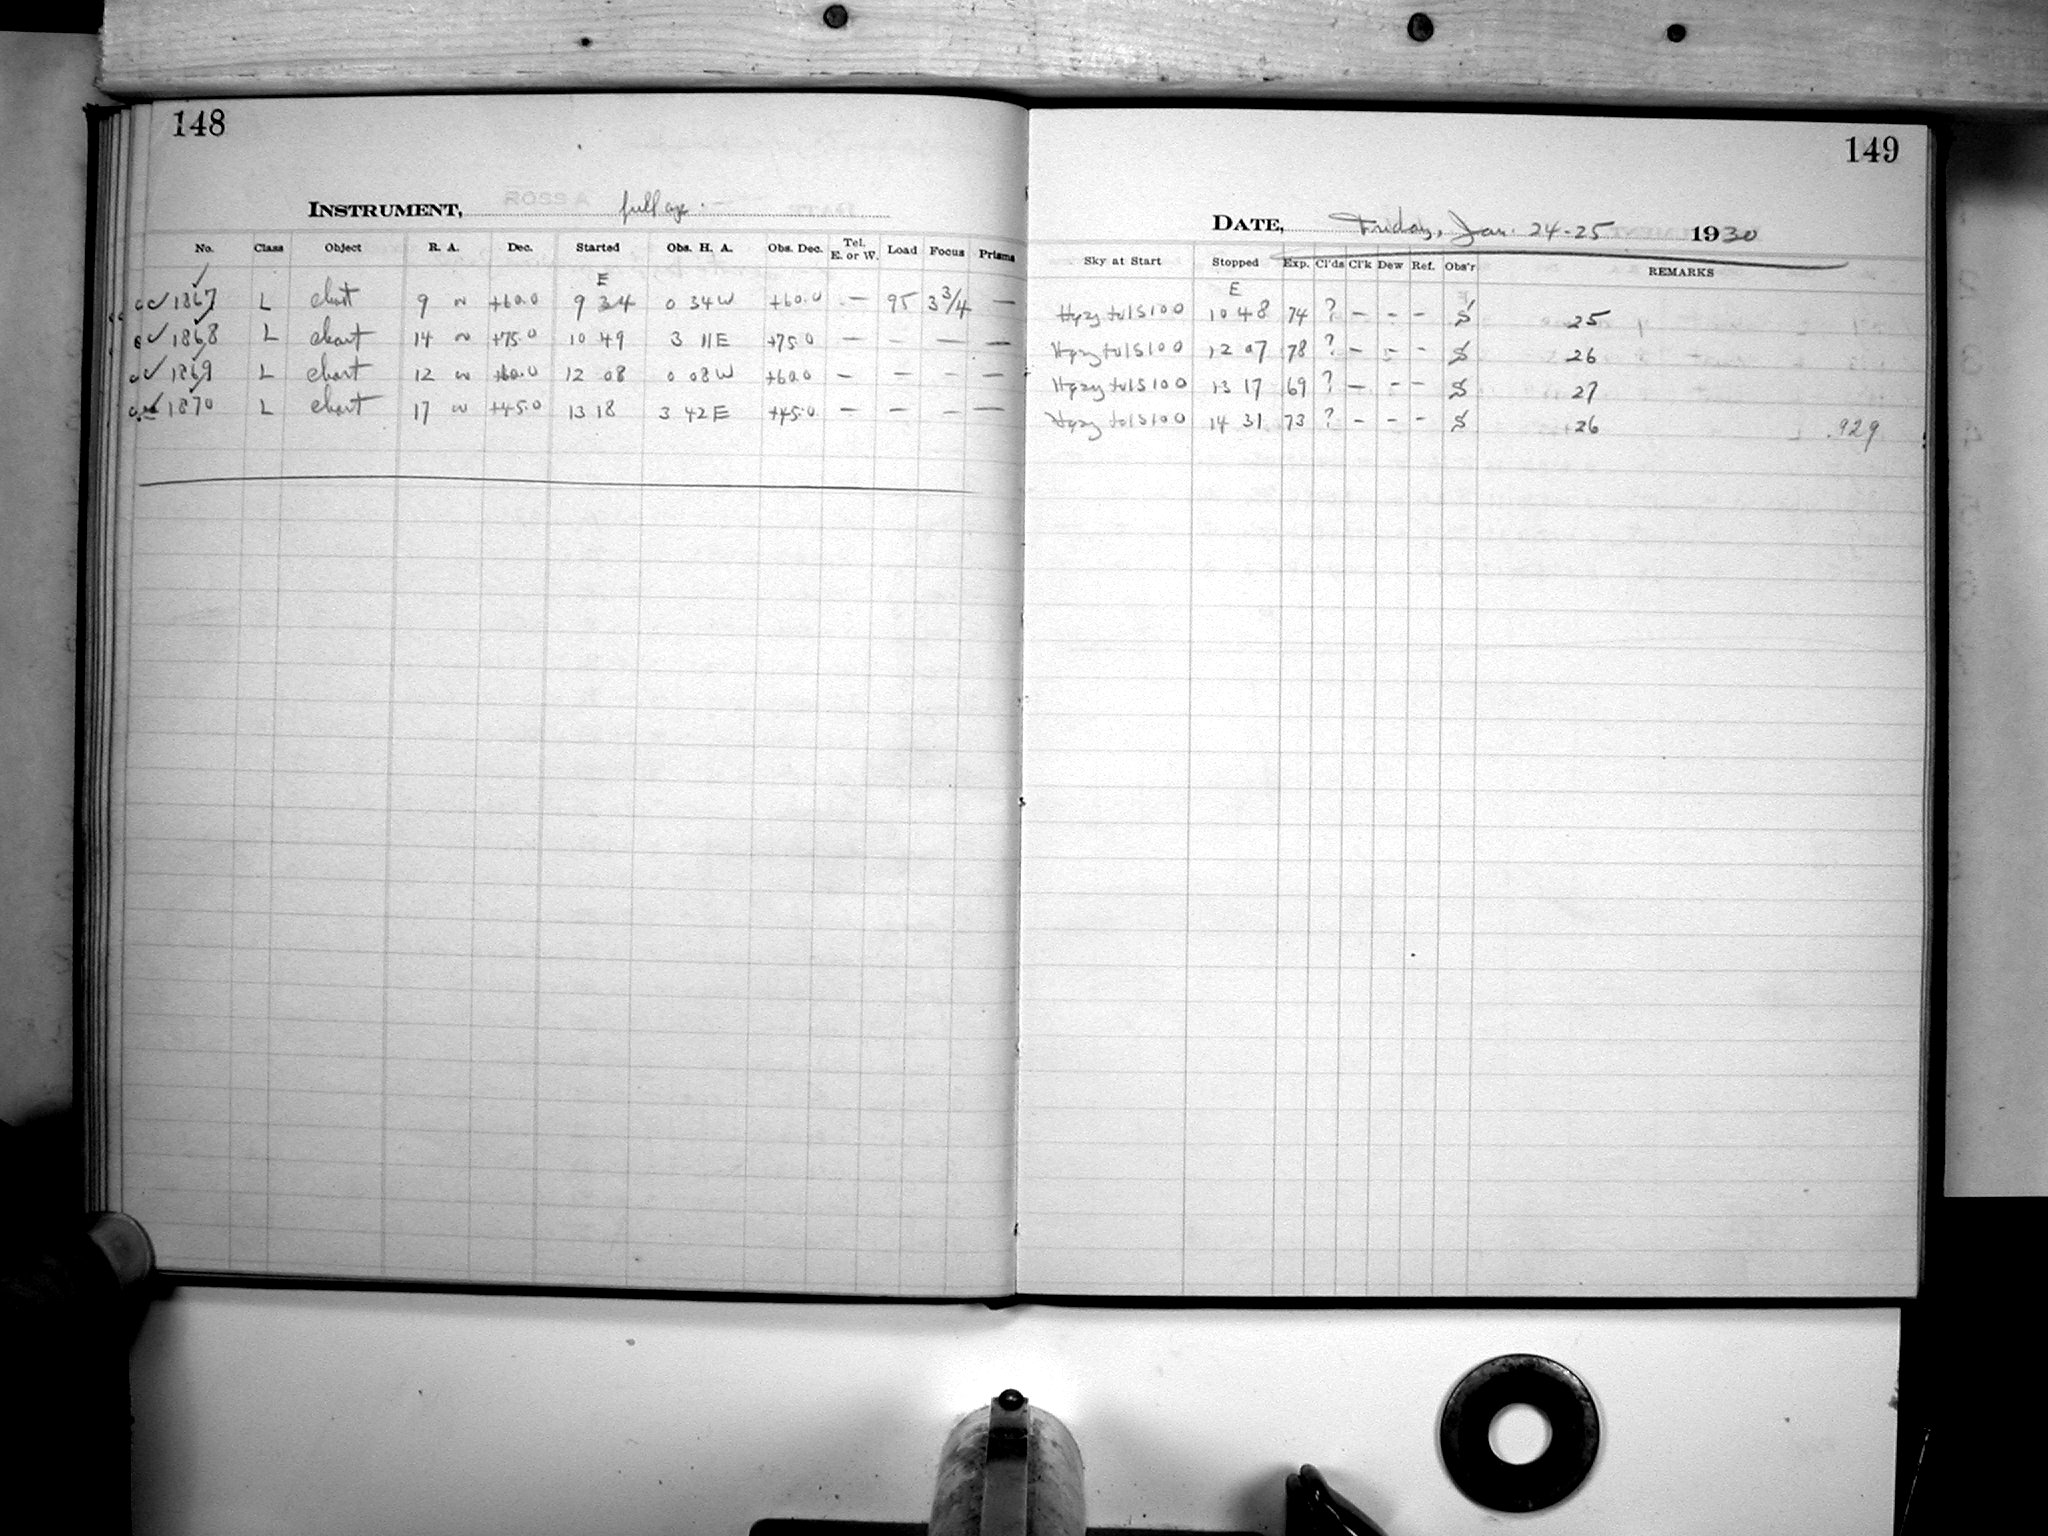 148
INSTRUMENT, full ap.
No. Class Object R. A. Dec. Started Obs. H. A. Obs. Dec. Tel. E. or W. Load Focus Prisms
E
1867 L chart 9 n +60.0 9 34 0 34 W +60.0 — 95 3 3/4 —
1868 L chart 14 n +75.0 10 49 3 11 E +75.0 — — — —
1869 L chart 12 n +60.0 12 08 0 08 W +60.0 — — — —
1870 L chart 17 n +45.0 13 18 3 42 E +45.0 — — — —
149
DATE, Friday, Jan. 24-25 1930
Sky at Start Stopped Exp. Cl'ds Cl'k Dew Ref. Obs'r REMARKS
E
S100 10 48 74 ? — - - S 25
S100 12 07 78 ? — - - S 26
S100 13 17 69 ? — - - S 27
S100 14 31 73 ? - - - S 26 .929